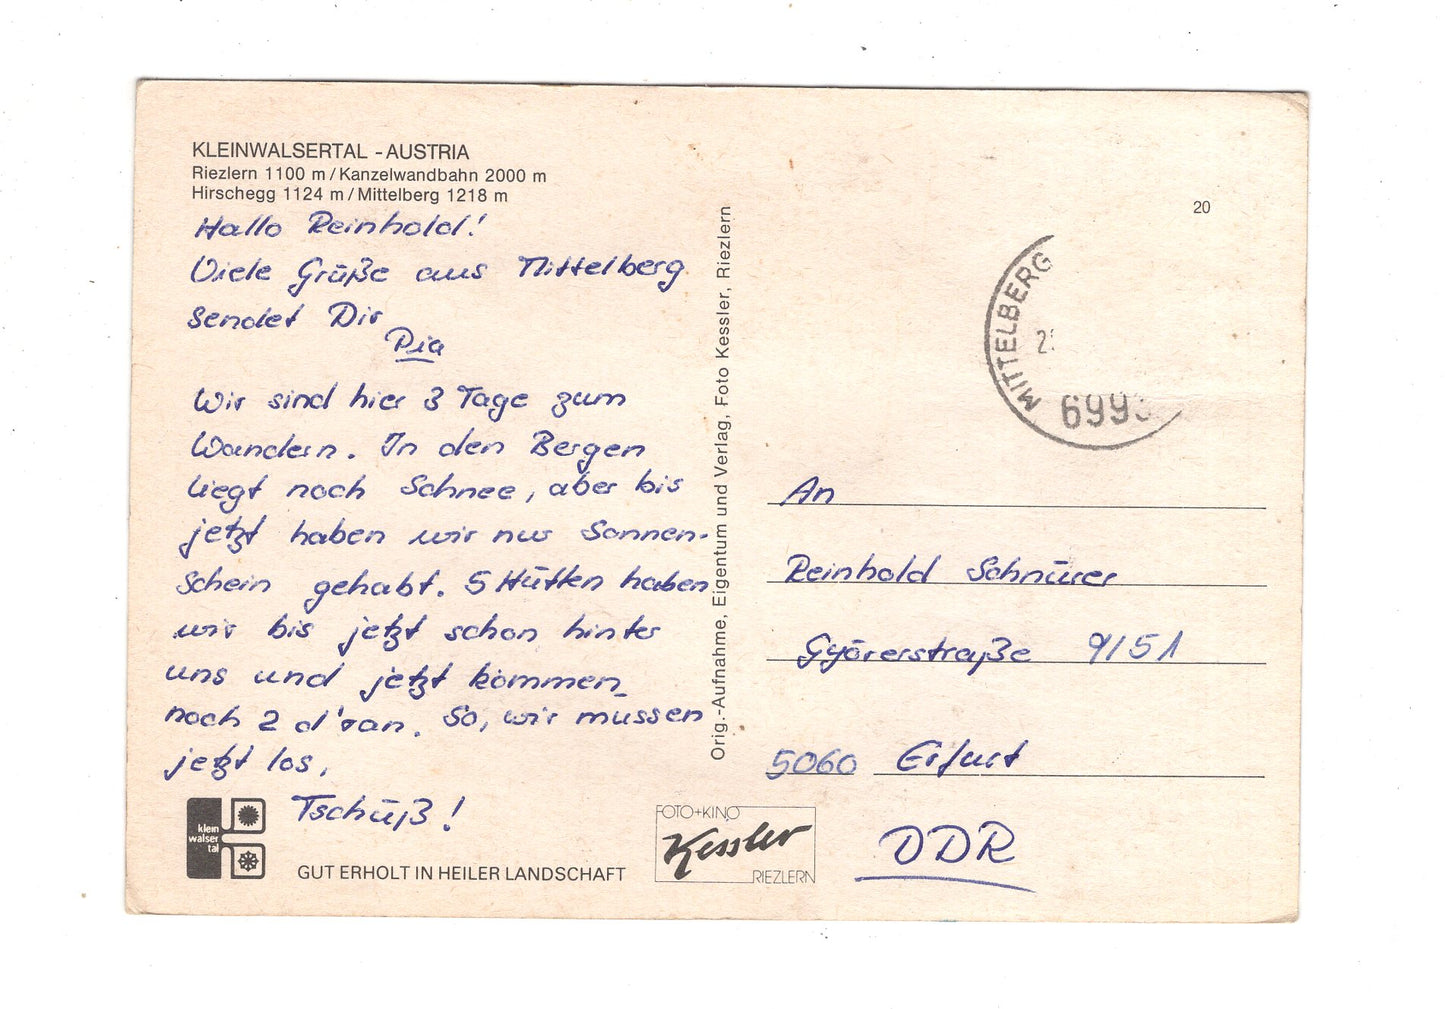 KLEINWALSERTAL - AUSTRIA
Riezlern 1100 m / Kanzelwandbahn 2000 m
Hirschegg 1124 m / Mittelberg 1218 m
Hallo Reinhold!
Viele Grüße aus Mittelberg
sendet Dir
Pia
Wir sind hier 3 Tage zum
Wandern. In den Bergen
liegt noch Schnee, aber bis
jetzt haben wir nur Sonnen-
schein gehabt. 5 Hütten haben
wir bis jetzt schon hinter
uns und jetzt kommen
noch 2 d'ran. So, wir müssen
jetzt los.
Tschüß!
klein
walser
tal
GUT ERHOLT IN HEILER LANDSCHAFT
Orig.-Aufnahme, Eigentum und Verlag, Foto Kessler, Riezlern
FOTO+KINO
Kessler
RIEZLERN
20
MITTELBERG
2
6993
An
Reinhold Schnürer
Györerstraße 9/51
5060 Erfurt
DDR